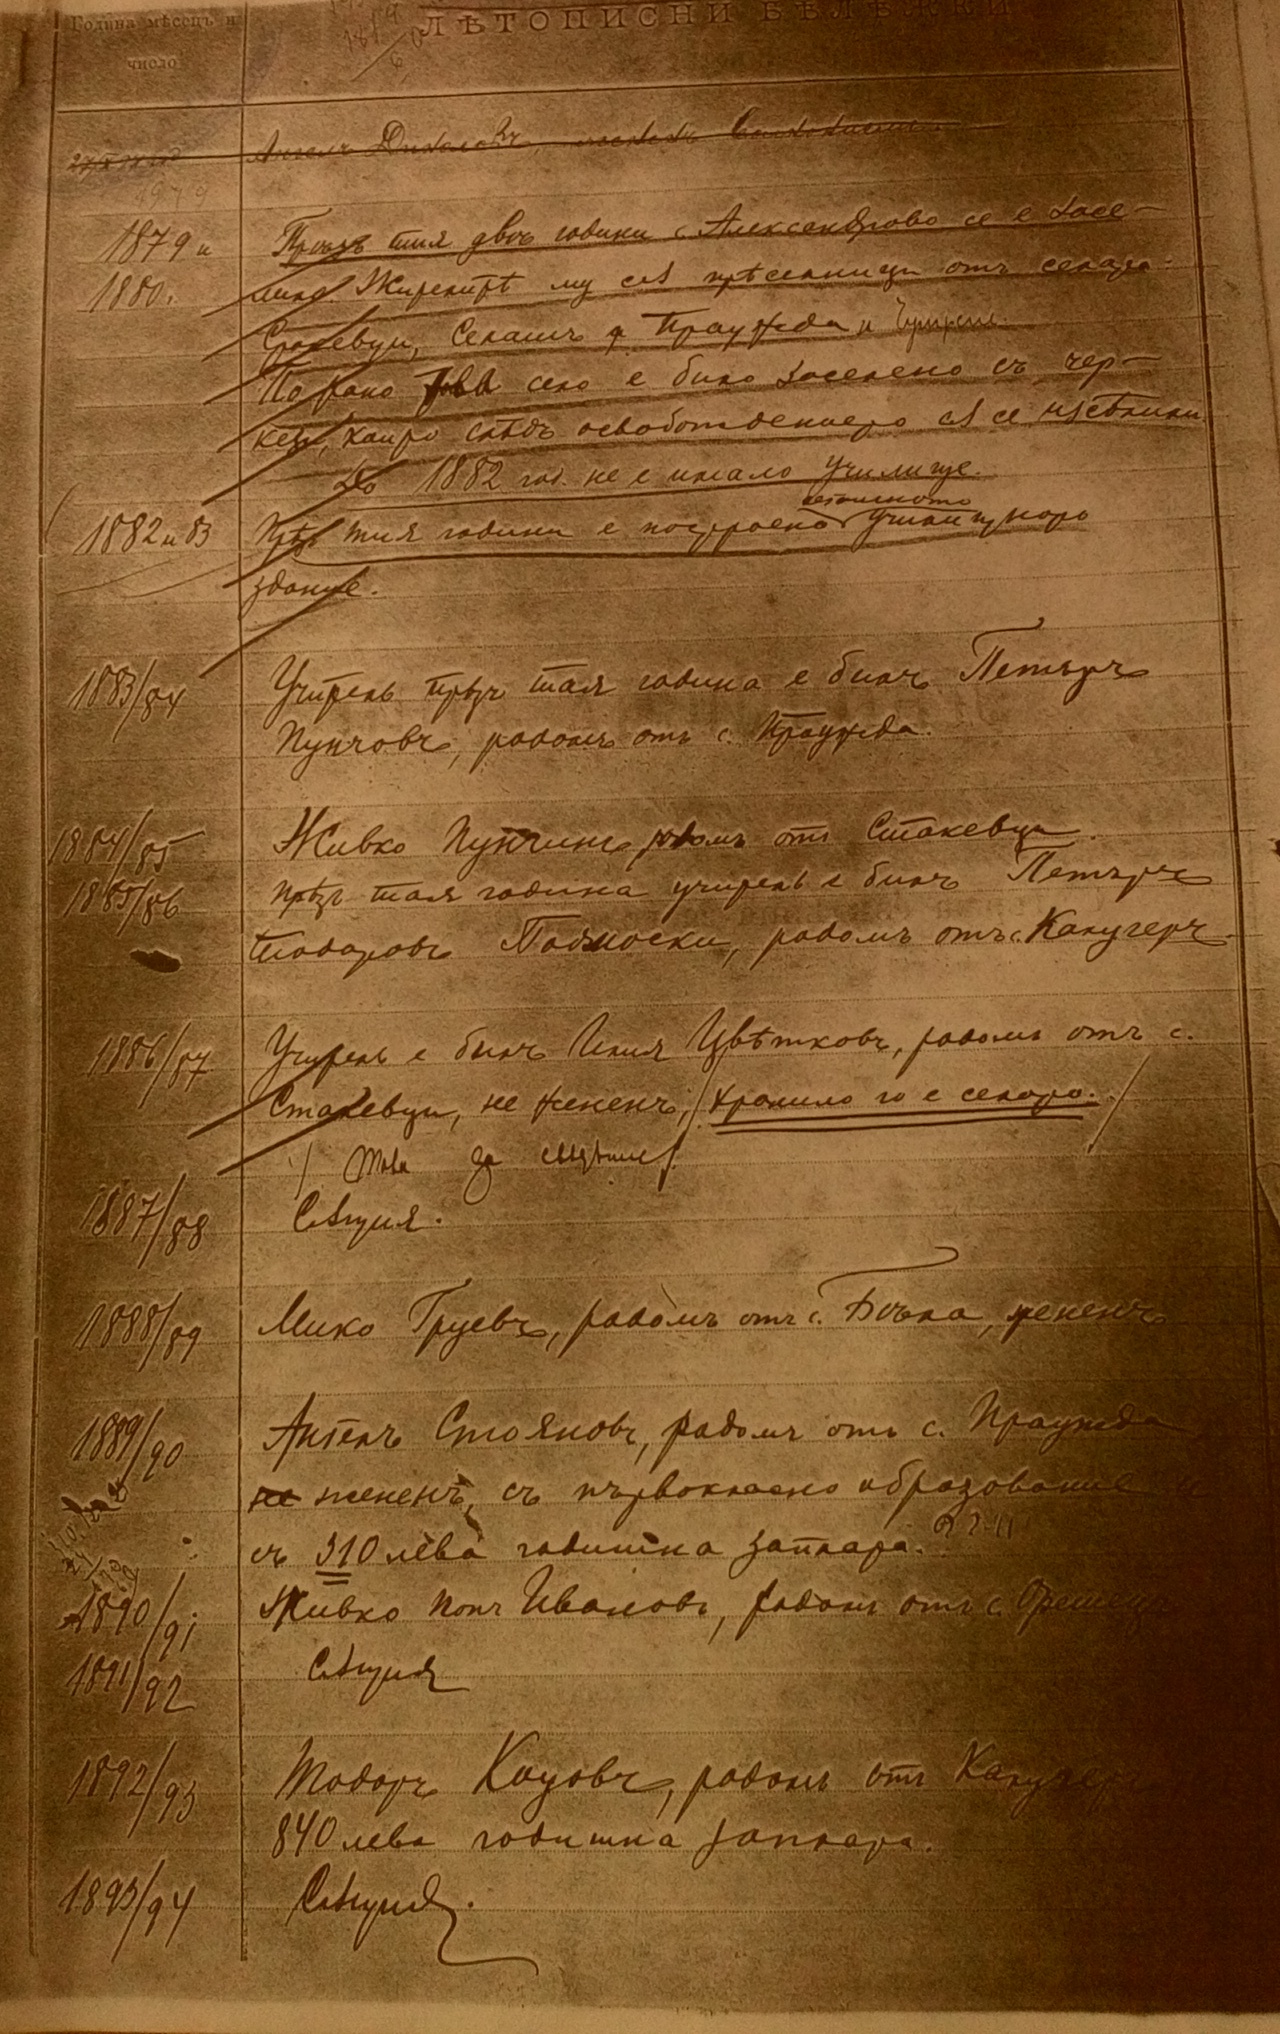 Година мѣсецъ и
число
ЛѢТОПИСНИ БѢЛѢЖКИ
Ангелъ
1879 и
Прѣзъ тия двѣ години с. Александрово се е засе-
1880.
лило Жителитѣ му сѫ прѣселници отъ селата
Стакевци, Праужда и
По рано това село е било заселено съ чер-
кези, които слѣдъ освобождението сѫ се изселили
До 1882 год. не е имало училище.
1882 и 83
Прѣзъ тия години е построено училищното
здание.
1883/84
Учитель прѣзъ тая година е билъ Петъръ
Пунчовъ, родомъ отъ с. Праужда.
1884/85
Живко Пунчинъ, родомъ отъ Стакевци.
1885/86
Прѣзъ тая година учитель е билъ Петъръ
Тодоровъ родомъ отъ с. Калугеръ
1886/87
Учитель е билъ Илия Цвѣтковъ, родомъ отъ с.
Стакевци, не жененъ, хранило го е селото.
това за
1887/88
Сѫщия.
1888/89
Мико Груевъ, родомъ отъ с. жененъ
1889/90
Ангелъ Стояновъ, родомъ отъ с. Праужда
не жененъ, съ първокласно образование и
съ 310 лева годишна заплата.
1890/91
Живко попъ Ивановъ, родомъ отъ с. Орешецъ
1891/92
Сѫщия
1892/93
Тодоръ Коцовъ, родомъ отъ Калугеръ
840 лева годишна заплата.
1893/94
Сѫщия.